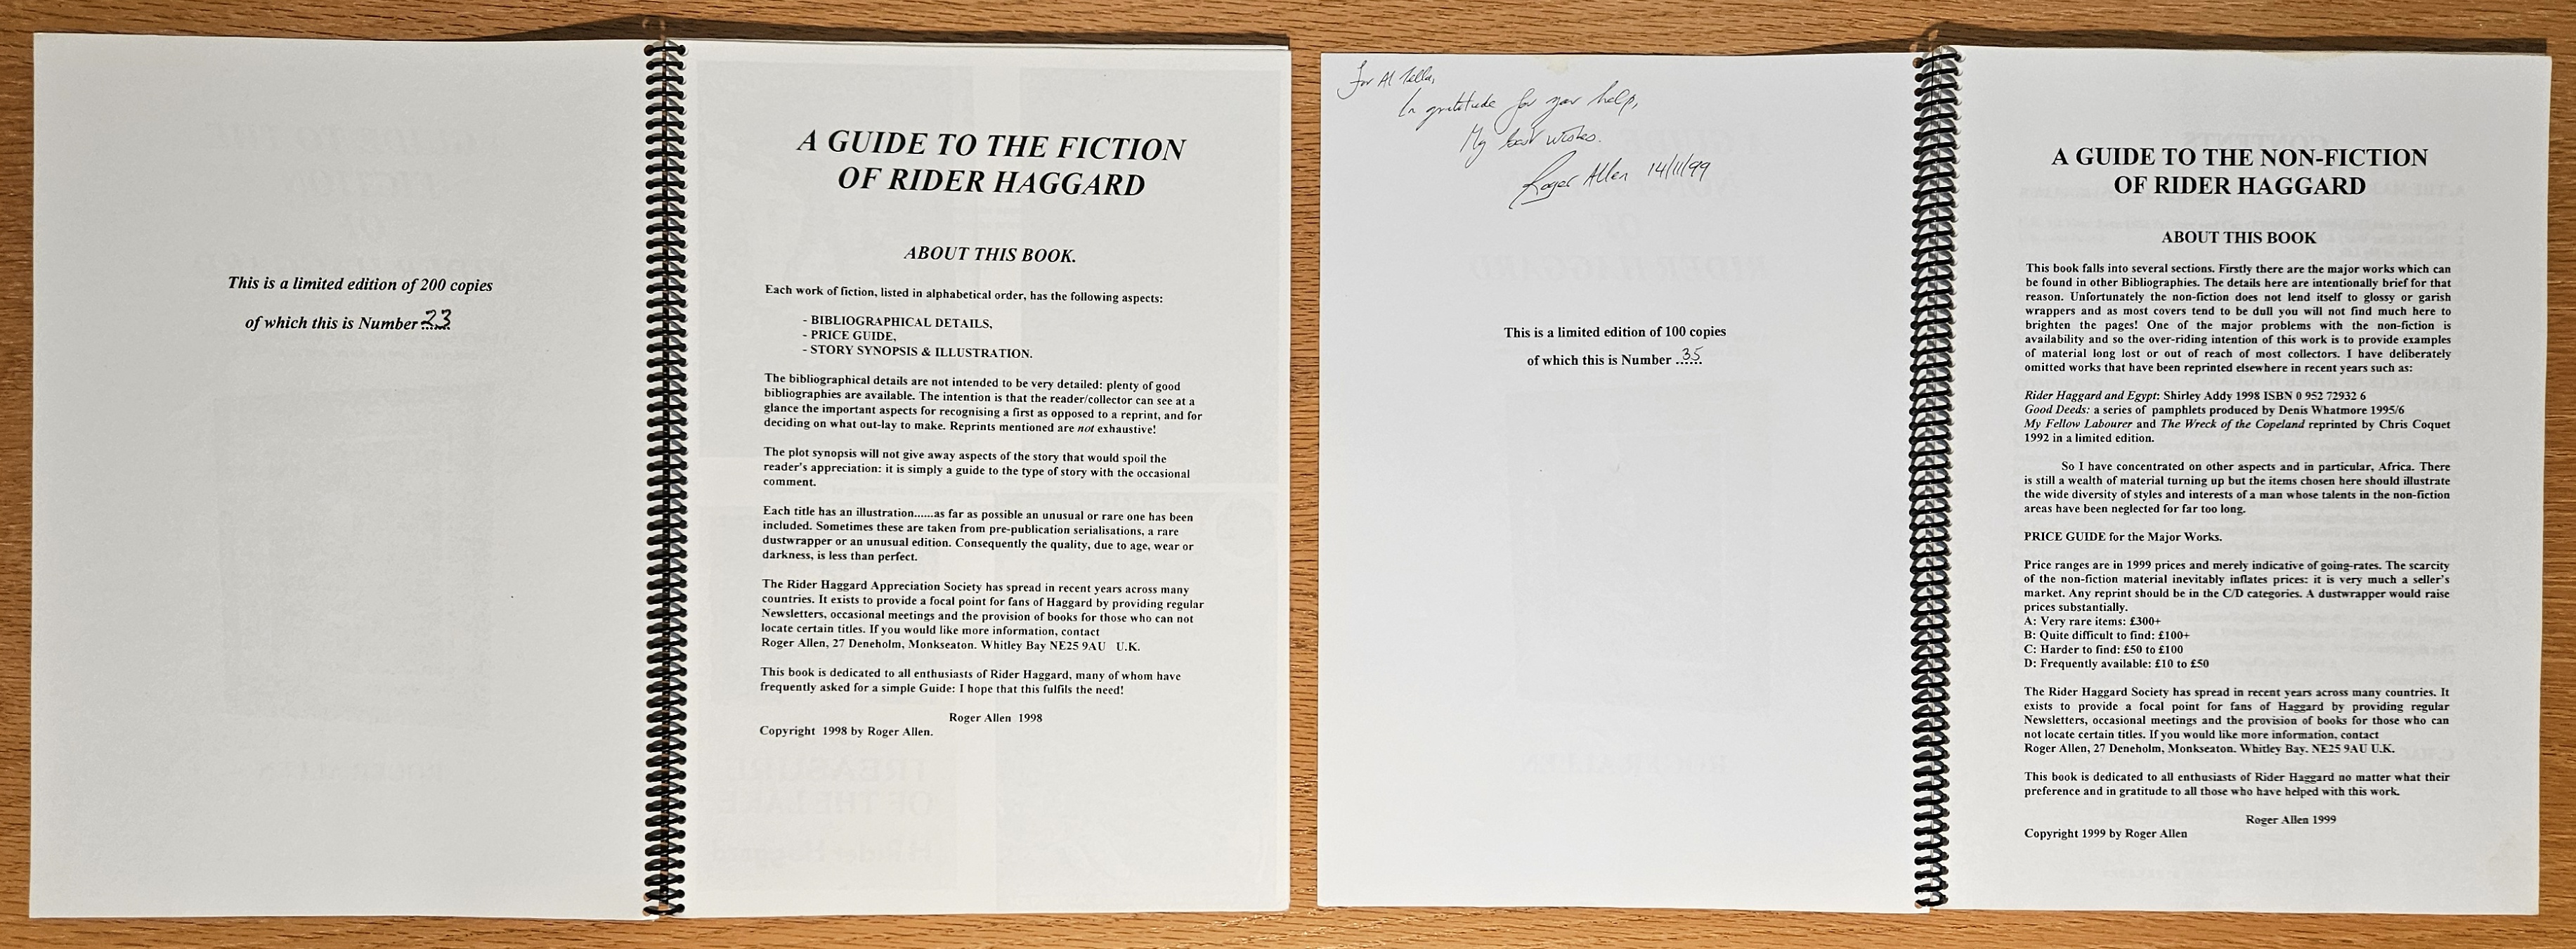 This is a limited edition of 200 copies
of which this is Number 23
A GUIDE TO THE FICTION
OF RIDER HAGGARD
ABOUT THIS BOOK.
Each work of fiction, listed in alphabetical order, has the following aspects:
- BIBLIOGRAPHICAL DETAILS,
- PRICE GUIDE,
- STORY SYNOPSIS & ILLUSTRATION.
The bibliographical details are not intended to be very detailed: plenty of good
bibliographies are available. The intention is that the reader/collector can see at a
glance the important aspects for recognising a first as opposed to a reprint, and for
deciding on what out-lay to make. Reprints mentioned are not exhaustive!
The plot synopsis will not give away aspects of the story that would spoil the
reader's appreciation: it is simply a guide to the type of story with the occasional
comment.
Each title has an illustration......as far as possible an unusual or rare one has been
included. Sometimes these are taken from pre-publication serialisations, a rare
dustwrapper or an unusual edition. Consequently the quality, due to age, wear or
darkness, is less than perfect.
The Rider Haggard Appreciation Society has spread in recent years across many
countries. It exists to provide a focal point for fans of Haggard by providing regular
Newsletters, occasional meetings and the provision of books for those who can not
locate certain titles. If you would like more information, contact
Roger Allen, 27 Deneholm, Monkseaton. Whitley Bay NE25 9AU U.K.
This book is dedicated to all enthusiasts of Rider Haggard, many of whom have
frequently asked for a simple Guide: I hope that this fulfils the need!
Roger Allen 1998
Copyright 1998 by Roger Allen.
For Al Tella,
In gratitude for your help,
My best wishes.
Roger Allen 14/11/99
This is a limited edition of 100 copies
of which this is Number 35
A GUIDE TO THE NON-FICTION
OF RIDER HAGGARD
ABOUT THIS BOOK
This book falls into several sections. Firstly there are the major works which can
be found in other Bibliographies. The details here are intentionally brief for that
reason. Unfortunately the non-fiction does not lend itself to glossy or garish
wrappers and as most covers tend to be dull you will not find much here to
brighten the pages! One of the major problems with the non-fiction is
availability and so the over-riding intention of this work is to provide examples
of material long lost or out of reach of most collectors. I have deliberately
omitted works that have been reprinted elsewhere in recent years such as:
Rider Haggard and Egypt: Shirley Addy 1998 ISBN 0 952 72932 6
Good Deeds: a series of pamphlets produced by Denis Whatmore 1995/6
My Fellow Labourer and The Wreck of the Copeland reprinted by Chris Coquet
1992 in a limited edition.
So I have concentrated on other aspects and in particular, Africa. There
is still a wealth of material turning up but the items chosen here should illustrate
the wide diversity of styles and interests of a man whose talents in the non-fiction
areas have been neglected for far too long.
PRICE GUIDE for the Major Works.
Price ranges are in 1999 prices and merely indicative of going-rates. The scarcity
of the non-fiction material inevitably inflates prices: it is very much a seller's
market. Any reprint should be in the C/D categories. A dustwrapper would raise
prices substantially.
A: Very rare items: £300+
B: Quite difficult to find: £100+
C: Harder to find: £50 to £100
D: Frequently available: £10 to £50
The Rider Haggard Society has spread in recent years across many countries. It
exists to provide a focal point for fans of Haggard by providing regular
Newsletters, occasional meetings and the provision of books for those who can
not locate certain titles. If you would like more information, contact
Roger Allen, 27 Deneholm, Monkseaton. Whitley Bay. NE25 9AU U.K.
This book is dedicated to all enthusiasts of Rider Haggard no matter what their
preference and in gratitude to all those who have helped with this work.
Roger Allen 1999
Copyright 1999 by Roger Allen